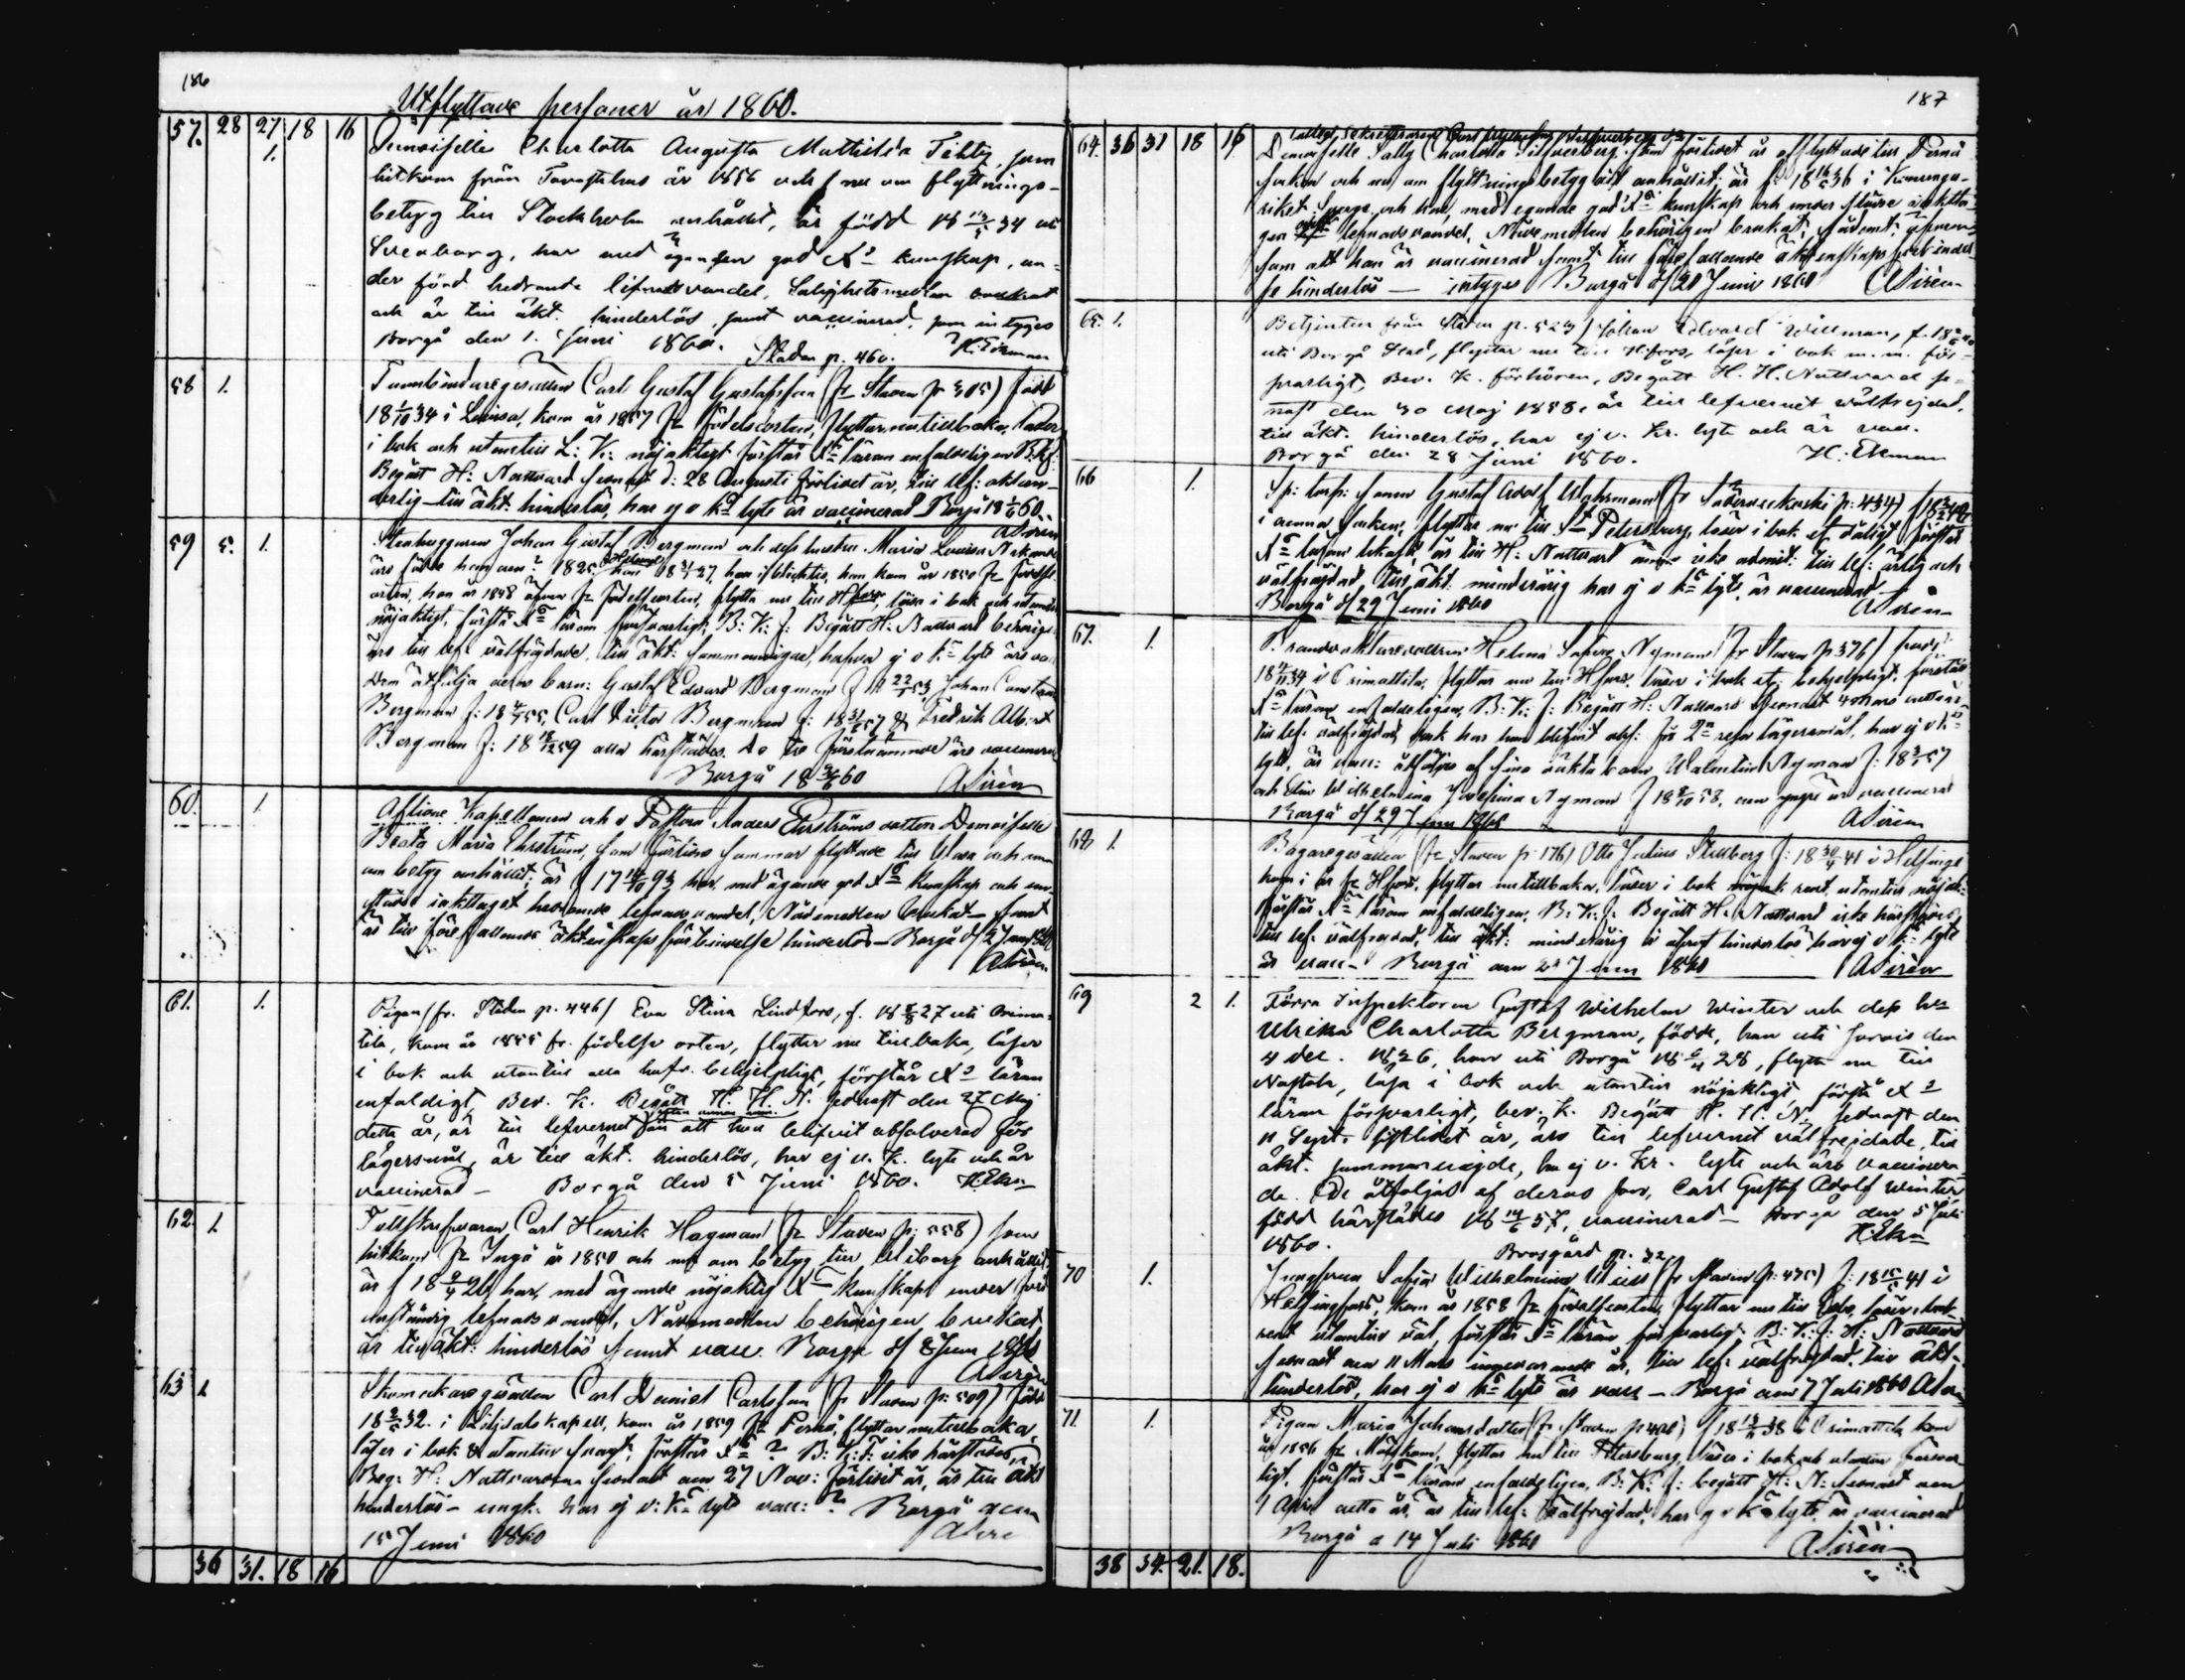 186
Utflyttade personer år 1860.
57. 28 27 18 16
1.
Demoiselle Charlotta Augusta Mathilda som
hitkom från Tavastehus år 1856 och nu om flyttnings-
betyg till Stockholm anhållit, är född 18 34 uti
Sveaborg, har med ägande god Xs kunskap, un-
der förd hedrande lefnadsvandel, Salighetsmedlen brukat
och är till äkt. hinderlös, samt vaccinerad, som intygas
Borgå den 1. Juni 1860. H. Ekman
Staden p. 460.
58 1.
Tunnbindaregesällen Carl Gustaf Gustafsson (fr Staden p 305) född
18 1/10 34 i Lovisa, kom år 1857 fr födelseorten, flyttar nu tillbaka, läser
i bok och utantill L: K: nöjaktigt förstår Xs läran enfaldeligen
Begått H: Nattvard senast d: 28 Augusti förlidet år, till lef:
till äkt: hinderlös, har ej v kd lyte är vaccinerad Borgå 18 60.
ASirén
59 5. 1.
Stenhuggaren Johan Gustaf Bergman och dess hustru Maria Lovisa
äro födde han 1825 hon 18 27, han kom år 1850 fr födelse-
orten, hon år 1848 fr födelseorten, flytta nu till Hfors, läsa i bok och utantill
nöjaktigt, förstå Xs läran försvarligt, B: K: f: Begått H: Nattvard behörigen
äro till lef: välfrejdade, till äkt: sammanvigde, hafva ej v k lyte äro va
Dem åtfölja deras barn: Gustaf Edvard Bergman f 18 22/ 53, Johan
Bergman f: 18 55, Carl Victor Bergman f: 18 57 & Fredrik Albert
Bergman f: 18 18/12 59 alla härstädes. De tre förstnämnde äro vaccinerade
Borgå 18 60 ASirén
60. 1.
Aflidne Kapellanen och v Pastorn Anders Ehrströms dotter Demoiselle
Beata Maria Ehrström, som sommar flyttade till Wasa och nu
om betyg anhållit, är f 17 93 har med ägande god Xs kunskap och un
iakttaget hedrande lefnadsvandel, Nådemedlen brukat samt
är till förefallande äktenskapsförbindelse hinderlös - Borgå d/2 Juni 1860
ASirén
61. 1.
Pigan (fr. Staden p. 446) Eva Stina Lindfors, f. 18 27 uti Orima-
tila, kom år 1855 fr. födelse orten, flyttar nu tillbaka, läser
i bok och utantill alla hufv. behjelpligt, förstår Xs läran
enfaldigt, Bev. K. Begått H. H. N. senast den 27 Maj
detta år, är till lefvernet att hon blifvit absolverad för
lägersmål, är till äkt. hinderlös, har ej v. K. lyte och är
vaccinerad - Borgå den 5 Juni 1860. H. Ekn
62. 1
Carl Henrik Hagman (fr Staden p: 558) som
hitkom fr Ingå år 1850 och nu om betyg till Wiborg anhållit
är f 18 9/4 26 har, med ägande nöjaktig Xs kunskap under förd
anständig lefnadsvandel, Nådemedlen behörigen brukat
är till äkt: hinderlös samt vacc. Borgå d/ 8 Juni 1860
ASirén
63 1
Skomakaregesällen Carl Daniel Carlsson (fr Staden p: 509) född
18 32. i Liljendals kapell, kom år 1859 fr Pernå, flyttar nu tillbaka,
läser i bok & utantill svagt, förstår Xs ? B: K: f: icke härstädes,
Beg: H: Nattvarden senast den 27 Nov: förlidet år, är till äkt
hinderlös - ungk. har ej v: K: lyte vacc: ? Borgå den
15 Juni 1860 ASiré
36 31. 18 16
187
64. 36 31 18 16
Demoiselle Sally Charlotta Silfverberg, som förlidet år afflyttade till Pernå
socken och nu om flyttningsbetyg anhållit, är f: 18 36 i Konunga-
riket Sverge, och har, med egande god Xs kunskap och under iaktta-
gen lefnadsvandel, Nådemedlen behörigen brukat,
som att hon är vaccinerad samt till förefallande äktenskapsförbindel-
se hinderlös - intygas Borgå d/20 Juni 1860 ASirén
65. 1.
Betjenten från Staden p. 523 / Johan Edvard Willman, f. 18
uti Borgå Stad, flyttar nu till H:fors, läser i bok m. m. för-
svarligt, Bev. K. förhören, Begått H. H. Nattvard se-
nast den 30 Maj 1858, är till lefvernet välfrejdad,
till äkt. hinderlös, har ej v. Kr. lyte och är vacc.
Borgå den 28 Juni 1860. H. Ekman
66 1.
Sp: torp: sonen Gustaf Adolf p: 434) f
i denna socken, flyttar nu till St Petersburg, läser i bok et. dåligt förstår
Xs läran likaså, är till H: Nattvard ännu icke admit: till lef: ärlig och
välfrejdad, till äkt: minderårig har ej v k lyte, är vaccinerad
Borgå d/29 Juni 1860 ASirén
67. 1.
Helena Sofia Nyman (fr Staden p 376) född
18 34 i Orimattila, flyttar nu till Hfors, läser i bok etc behjelpligt, förstår
Xs läran enfaldeligen, B: K: f: Begått H: Nattvard senast 4 Mars detta år
till lef: välfrejdad, dock har hon blifvit abs: för 2n resan lägersmål, har ej v k
lyte, är vacc: åtföljes af sina oäkta barn Valentin Nyman f: 18 57
och Elin Wilhelmina Josefina Nyman f 18 58, den yngre är vaccinerad
Borgå d/29 Juni 1860 ASirén
68 1.
Bagaregesällen (fr Staden p: 176) Otto Julius Stillberg f: 18 30/4 41 i Helsinge
kom i år fr Hfors, flyttar nu tillbaka, läser i bok rent, utantill nöjak:
förstår Xs läran enfaldeligen, B: K: f: Begått H: Nattvard icke härstädes,
till lef: välfrejdad, till äkt: minderårig hinderlös har ej v k: lyte
är vacc - Borgå den Juni 1860 ASirén
69 2 1.
Förra Inspektoren Gustaf Wilhelm Winter och dess hu
Ulrika Charlotta Bergman, födde, han uti Jorvois den
4 dec. 1826, hon uti Borgå 18 28, flytta nu till
Nastola, läsa i bok och utantill nöjaktigt, förstå Xs
läran försvarligt, bev. K. Begått H. H. N. sednast den
11 Sept. sistlidet år, äro till lefvernet välfrejdade, till
äkt. sammanvigde, ha ej v. Kr. lyte och äro vaccinera-
de. De åtföljas af deras son, Carl Gustaf Adolf Winter
född härstädes 18 57, vaccinerad - Borgå den 5 Juli
1860. H. Ekn
Brosgård p. 32
70 1.
Jungfrun Sofia Wilhelmina (fr Staden p: 475) f: 18 41 i
Helsingfors, kom år 1858 fr födelseorten, flyttar nu till Esbo, läser i bok
rent utantill väl, förstår Xs läran försvarligt B: K: f: H: Nattvard
senast den 11 Mars innevarande år, till lef: välfrejdad, till äkt-
hinderlös, har ej v k lyte är vacc - Borgå den 7 Juli 1860 ASirén
71. 1.
Pigan Maria Johansdotter (fr Staden p 408) f 18 38 i Orimattila kom
år 1856 fr Mörskom, flyttar nu till Petersburg, läser i bok och utantill försvar-
ligt, förstår Xs läran enfaldeligen, B: K: f: begått H: N: senast den
1 April detta år, är till lef: välfrejdad, har ej v k lyte, är vaccinerad
Borgå d 14 Juli 1860 ASirén
38 34 21. 18.